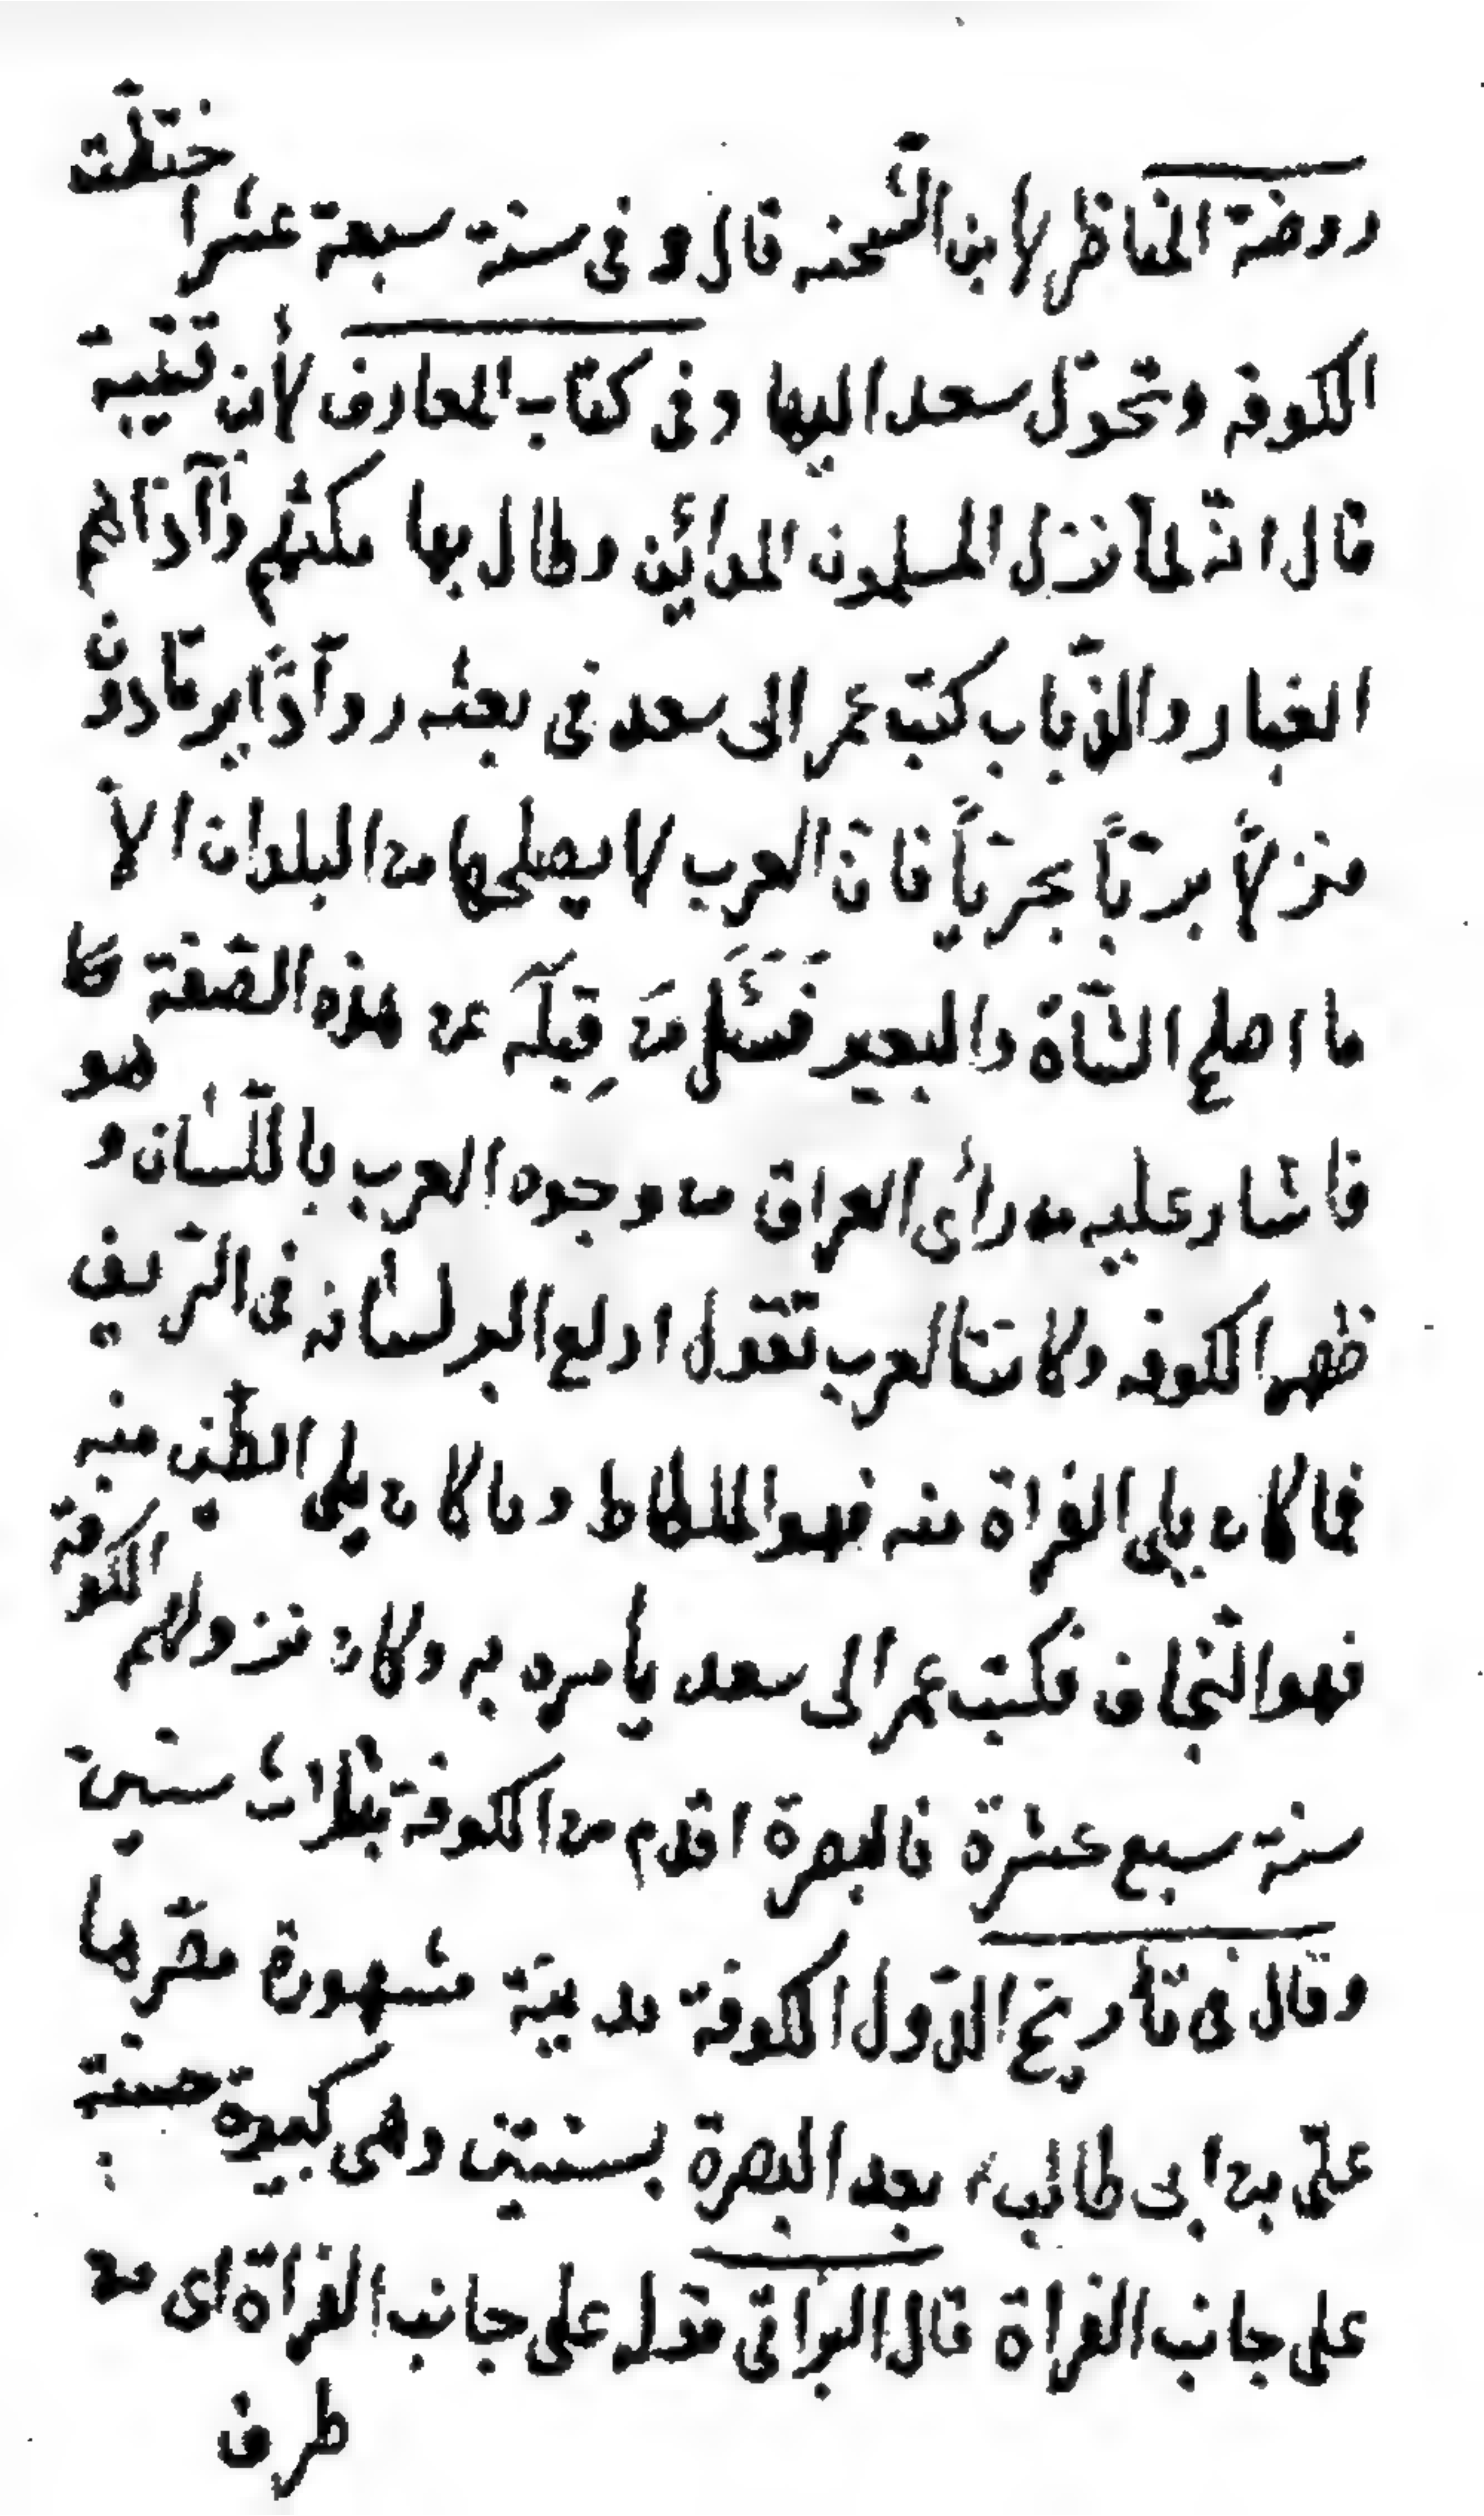 روضة المناظر لابن الشحنه قال وفى سنة سبعة عشر اختطت
الكوفة وتحوّل سعد اليها وفى كتاب المعارف لأبن قتيبة
قال انّه لمّا نزل المسلمون المدائن وطال بها مكثهم وآذاهم
الغبار والذّباب كتب عمر الى سعد فى بعثه روّاداً يرتادون
منزلاً برّيّاً بحريّاً فانّ العرب لا يصلحها من البلدان الاّ
ما اصلح الشّاة والبعير فسَئَلَ مَن قِبَلَه عن هذه الصّفة كا
هو
فاشار عليه من رأى العراق من وجوه العرب باللّسان و
ظهر الكوفه وكانت العرب تقول ادلع البر لسانه فى الرّيف
فما كان يلى الفراة منه فهو الملطاط وما كان يلى الطّين منه
فهو النّجاف فكتب عمر الى سعد يأمره به وكان نزولهم الكوفة
سنة سبع عشرة فالبصرة اقدم من الكوفة بثلاث سنين
وقال فى تأريخ الدّول الكوفة مدينة مشهورة مصّرها
علىّ بن ابى طالب ء بعد البصرة بسنتين وهى كبيرة حسنة
على جانب الفراة قال البراقى قوله على جانب الفراة اى من
طرف